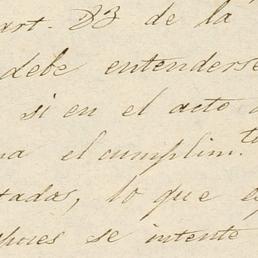 art. 83 de la
debe entenderse
si en el acto
el cumplim.to
tadas, lo que
se intente